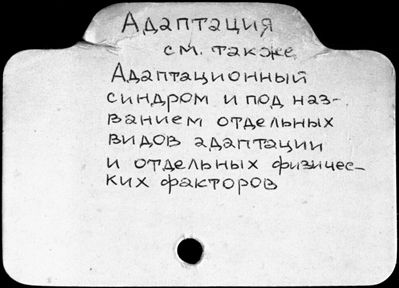 Адаптация
см. также
Адаптационный
синдром и под наз-
ванием отдельных
видов адаптации
и отдельных физичес-
ких факторов